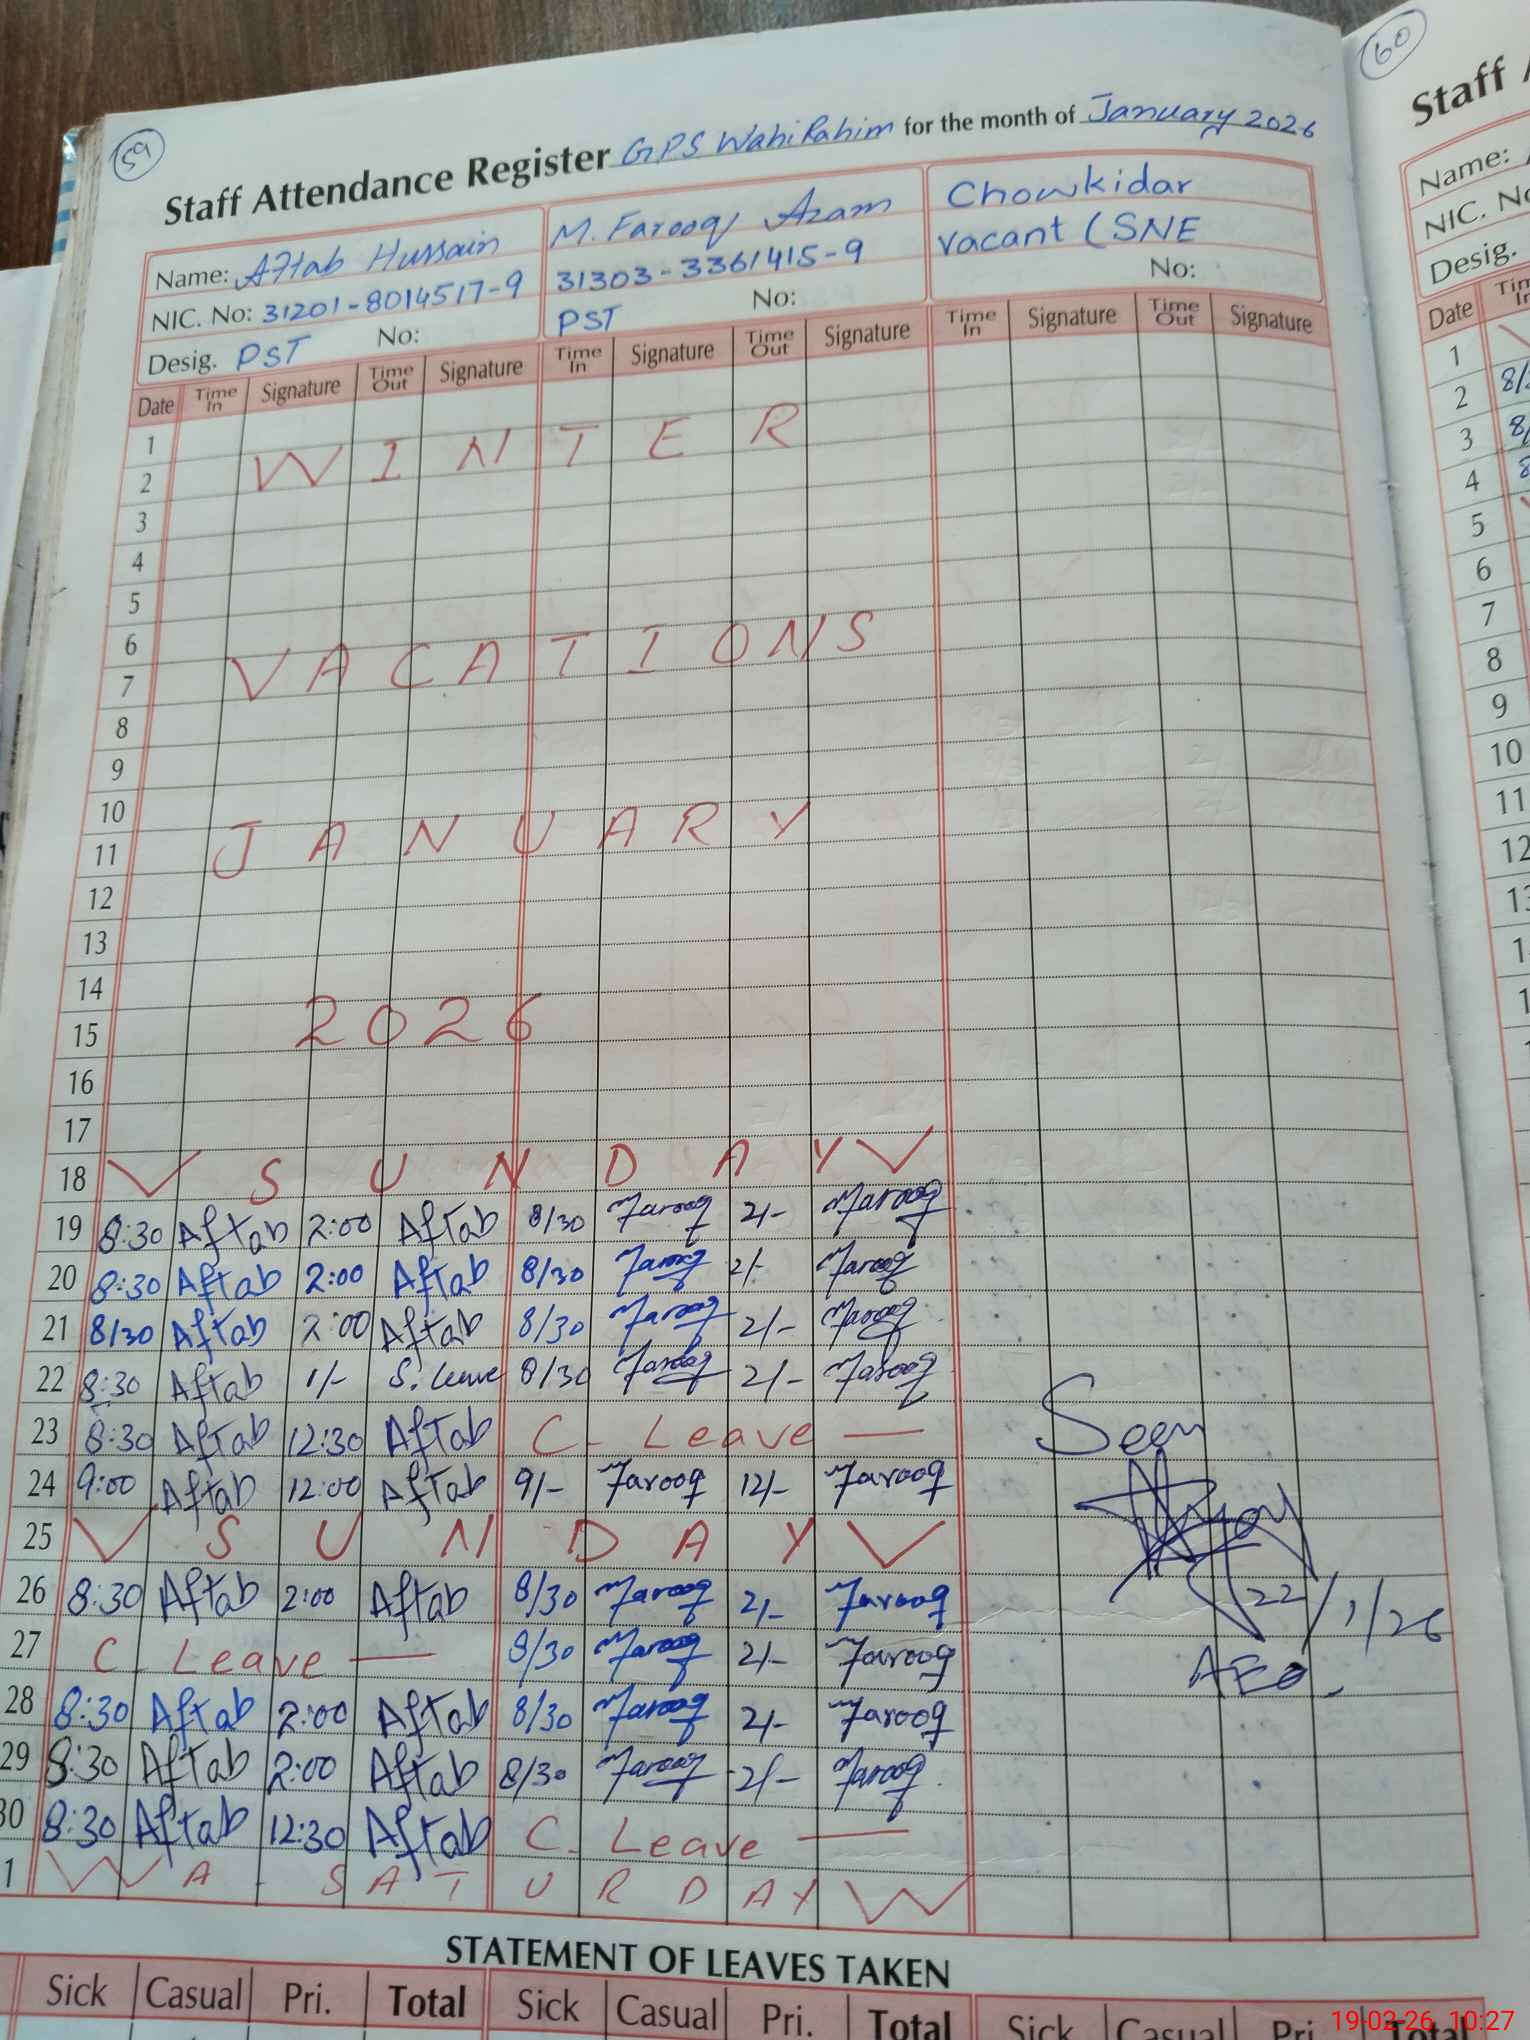 59
60
Staff Attendance Register GPS Wahi Rahim for the month of January 2026
Staff
Name: Aftab Hussain M. Farooq Azam Chowkidar
NIC. No: 31201-8014517-9 31303-3361415-9 Vacant (SNE
Desig. PST No: PST No: No:
Date Time In Signature Time Out Signature Time In Signature Time Out Signature Time In Signature Time Out Signature
1
2 W I N T E R
3
4
5
6
7 V A C A T I O N S
8
9
10
11 J A N U A R Y
12
13
14
15 2026
16
17
18 S U N D A Y
19 8:30 Aftab 2:00 Aftab 8/30 Farooq 2/- Farooq
20 8:30 Aftab 2:00 Aftab 8/30 Farooq 2/- Farooq
21 8/30 Aftab 2:00 Aftab 8/30 Farooq 2/- Farooq
22 8:30 Aftab 1/- S. leave 8/30 Farooq 2/- Farooq
23 8:30 Aftab 12:30 Aftab C. Leave —
24 9:00 Aftab 12:00 Aftab 9/- Farooq 12/- Farooq
25 S U N D A Y
26 8:30 Aftab 2:00 Aftab 8/30 Farooq 2/- Farooq
27 C. Leave — 8/30 Farooq 2/- Farooq
28 8:30 Aftab 2:00 Aftab 8/30 Farooq 2/- Farooq
29 8:30 Aftab 2:00 Aftab 8/30 Farooq 2/- Farooq
30 8:30 Aftab 12:30 Aftab C. Leave —
1 S A T U R D A Y
Seen
22/1/26
AEO.
STATEMENT OF LEAVES TAKEN
Sick Casual Pri. Total Sick Casual Pri. Total Sick Casual Pri. Total
Name:
NIC. No
Desig.
Date Time In
1
2 8/
3 8/
4 8
5
6
7
8
9
10
11
12
13
19-02-26 10:27